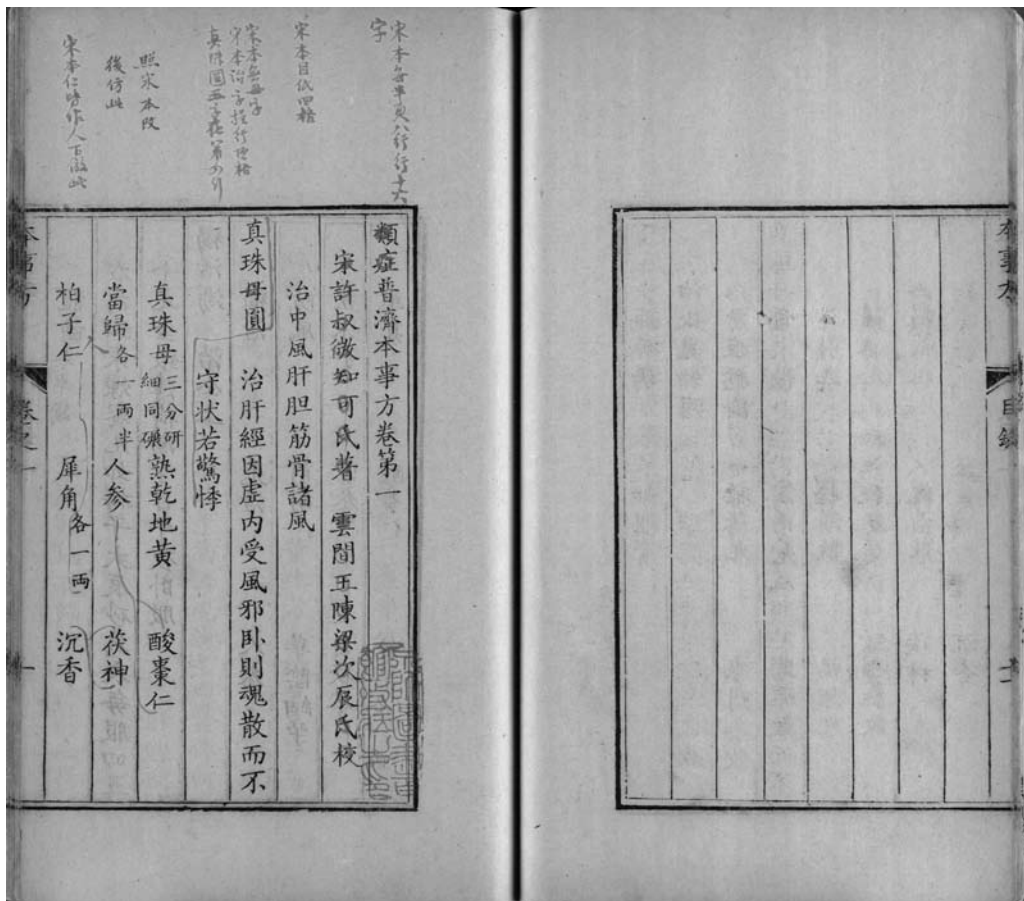 本事方
目錄
宋本每半頁八行行十六
字
宋本目低四格
宋本無母字
宋本治字提行頂格
真珠圓五字在第四行
照宋本改
後仿此
宋本仁時作人下倣此
類症普濟本事方卷第一
宋許叔微知可氏著　雲間王陳梁次辰氏校
治中風肝胆筋骨諸風
真珠母圓　治肝經因虛內受風邪卧則魂散而不
守状若驚悸
真珠母三分研細同碾熟乾地黄　酸棗仁
當歸各一兩半人參　茯神
柏子仁　犀角各一兩　沉香
本事方　卷之一　一